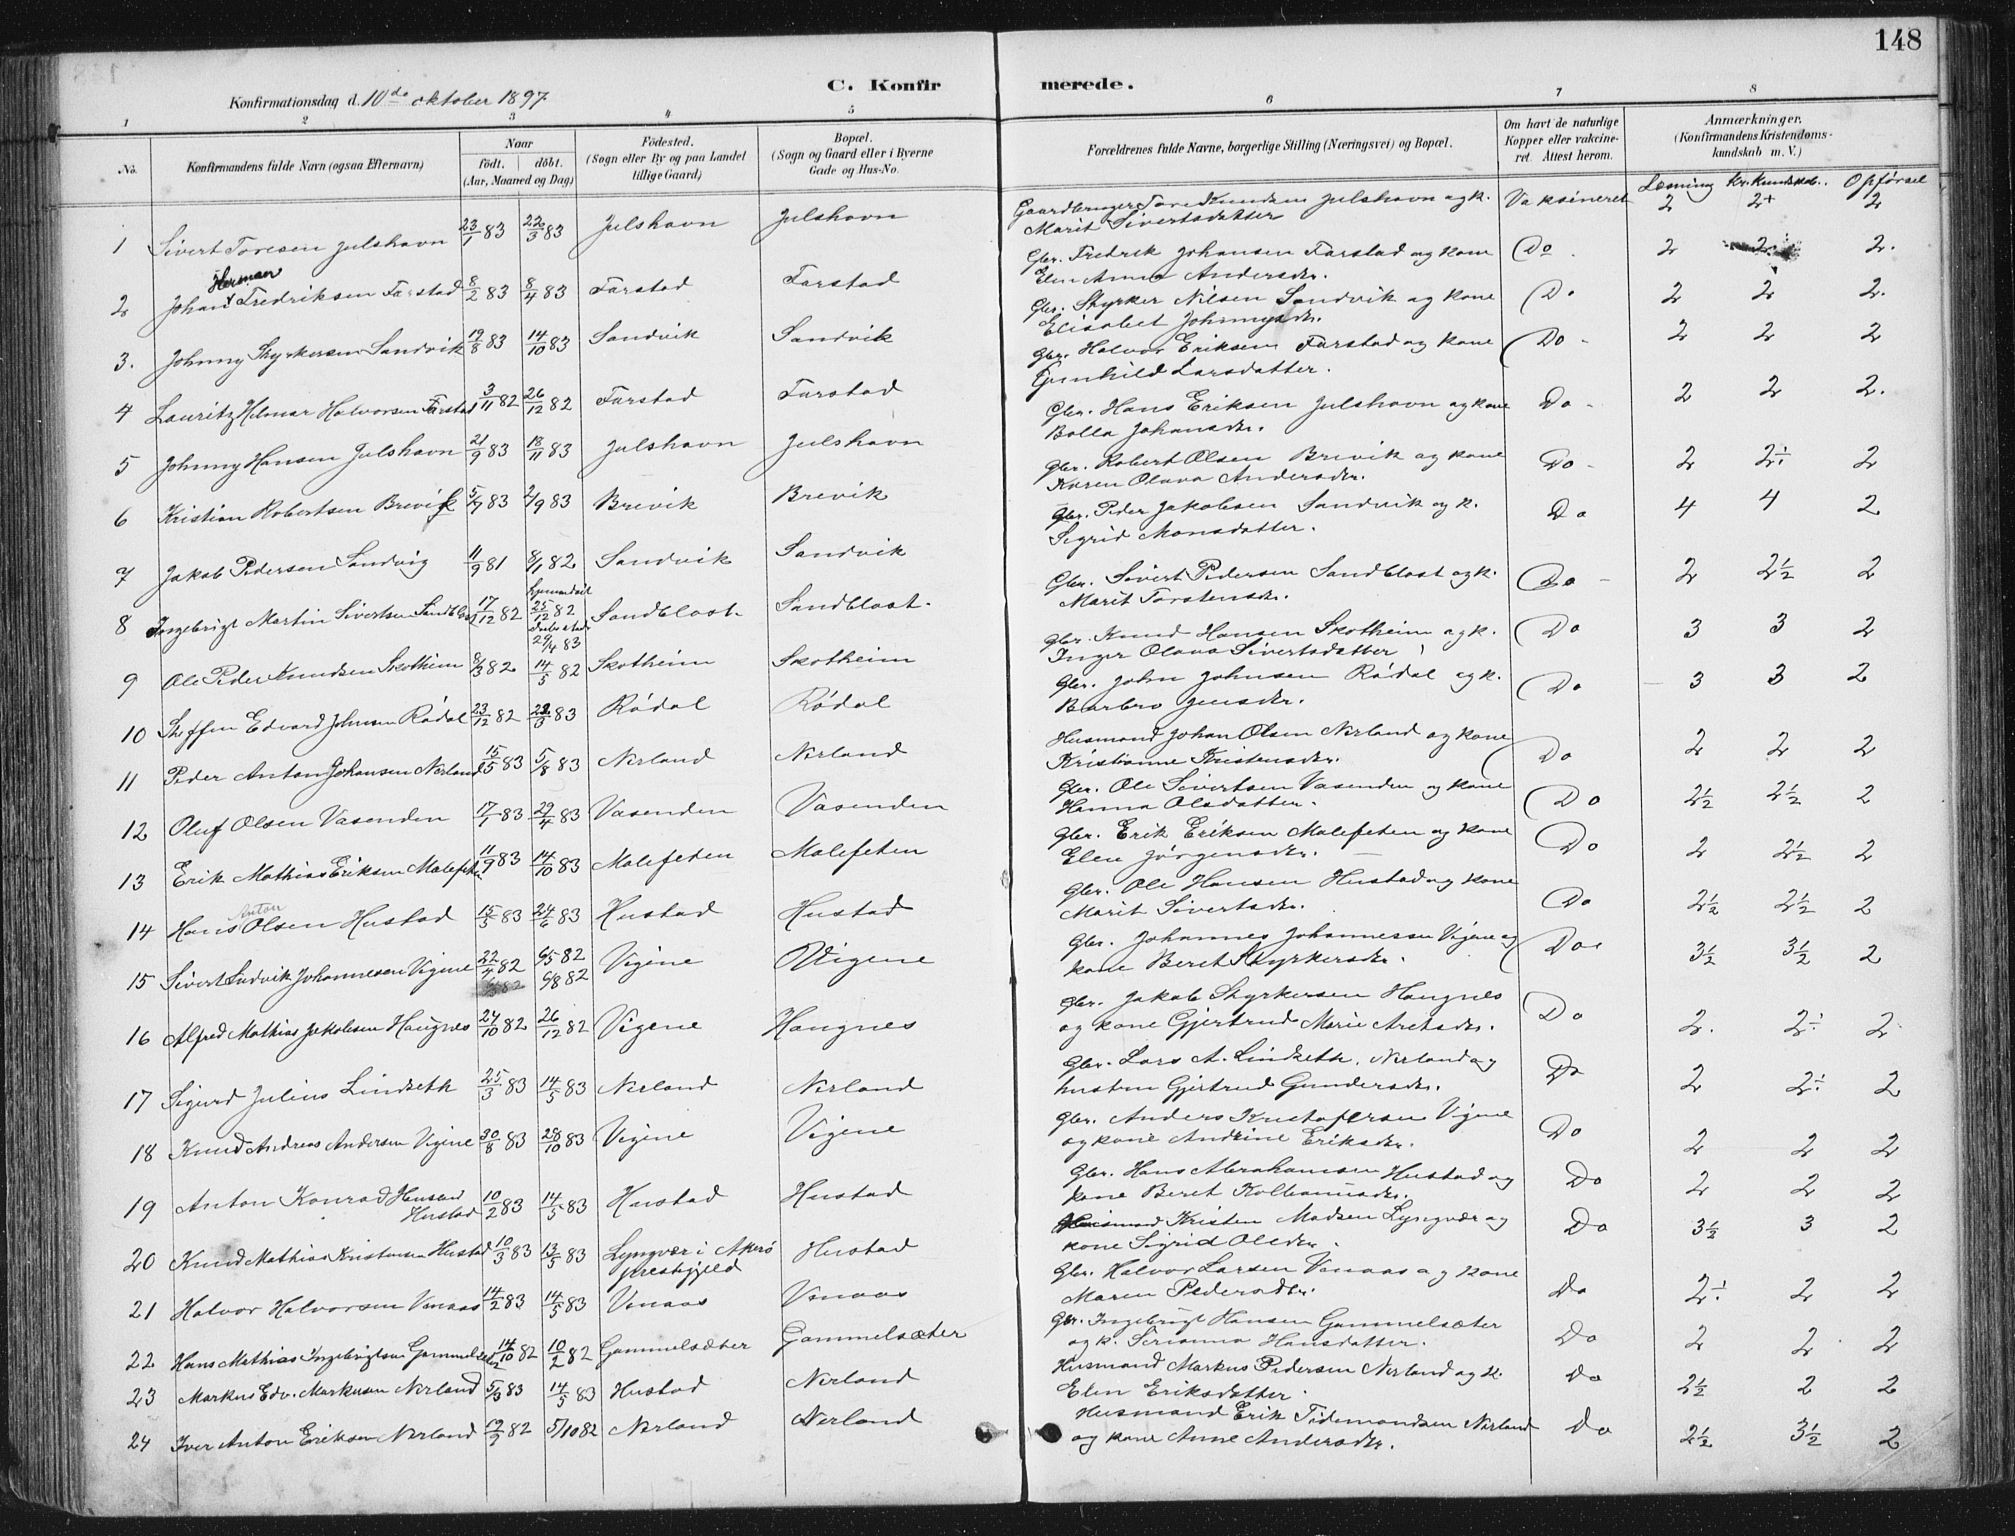 148
C. Konfirmerede.
Konfirmationsdag d. 10de oktober 1897
1 2 3 4 5 6 7 8
No.
Konfirmandens fulde Navn (ogsaa Efternavn)
Naar
født. døbt.
(Aar, Maaned og Dag)
Fødested.
(Sogn eller By og paa Landet
tillige Gaard)
Bopæl.
(Sogn og Gaard eller i Byerne
Gade og Hus-No.
Forældrenes fulde Navne, borgerlige Stilling (Næringsvei) og Bopæl.
Om havt de naturlige
Kopper eller vakcine-
ret. Attest herom.
Anmærkninger.
(Konfirmandens Kristendoms-
kundskab m. V.)
Læsning Kr. Kundskab. Opførsel
1 Sivert Toresen Julshavn 23/1 83 22/3 83 Julshavn Julshavn Gaardbruger Tore Knudsen Julshavn og k. Vaksineret 2 2+ 2
Marit Sivertsdatter
2 Johan Herman Fredriksen Farstad 8/2 83 8/4 83 Farstad Farstad Gbr. Fredrik Johansen Farstad og kone Do 2 2 2.
Elen Anna Andersdtr.
3. Johnny Styrkersen Sandvik 19/8 83 14/10 83 Sandvik Sandvik Gbr. Styrker Nilsen Sandvik og kone Do 2 2 2.
Elisabet Johnnysdtr.
4 Lauritz Hilmar Halvorsen Farstad 3/11 82 26/12 82 Farstad Farstad Gbr. Halvor Eriksen Farstad og kone Do 2 2 2
Gunhild Larsdatter.
5 Johnny Hansen Julshavn 21/9 83 18/11 83 Julshavn Julshavn Gbr. Hans Eriksen Julshavn og kone Do 2 2 2.
Bolla Johansdtr.
6 Kristian Robertsen Brevik 5/7 83 2/9 83 Brevik Brevik Gbr. Robert Olsen Brevik og kone Do 2 2÷ 2
Karen Olava Andersdtr.
7 Jakob Pedersen Sandvig 11/9 81 8/1 82 Sandvik Sandvik Gbr. Peder Jakobsen Sandvik og k. Do 4 4 2
Sigrid Monsdatter.
8 Ingebrigt Martin Sivertsen Sandblaast 17/12 82 hjemmedøbt 25/12 82 29/4 83 Sandblaast Sandblaast. Gbr. Sivert Pedersen Sandblaast og k. Do 2 2½ 2
Marit Torstensdtr.
9 Ole Peder Knudsen Skotheim 8/3 82 14/5 82 Skotheim Skotheim Gbr. Knud Hansen Skotheim og k. Do 3 3 2
Inger Olava Sivertsdatter
10 Steffen Edvard Johnsen Rødal 23/12 82 22/3 83 Rødal Rødal Gbr. John Johnsen Rødal og k. Do 3 3 2
Barbro Jensdtr.
11 Peder Anton Johansen Nerland 15/5 83 5/8 83 Nerland Nerland Husmand Johan Olsen Nerland og kone Do 2 2 2
Kristianne Kristensdtr.
12 Oluf Olsen Vasenden 17/1 83 22/4 83 Vasenden Vasenden Gbr. Ole Sivertsen Vasenden og kone Do 2½ 2½ 2
Hanna Olsdatter.
13 Erik Mathias Eriksen Malefeten 11/9 83 14/10 83 Malefeten Malefeten Gbr. Erik Eriksen Malefeten og kone Do 2 2½ 2
Elen Jørgensdtr.
14 Hans Anton Olsen Hustad 15/5 83 24/6 83 Hustad Hustad Gbr. Ole Hansen Hustad og kone Do 2½ 2½ 2
Marit Sivertsdtr.
15 Sivert Ludvik Johannesen Vigene 22/4 82 6/5 82 6/8 82 Vigene Vigene Gbr. Johannes Johannessen Vigene og Do 3½ 3½ 2
kone Beret Styrkersdtr.
16 Alfred Mathias Jakobsen Haugnes 24/10 82 26/12 82 Vigene Haugnes Gbr. Jakob Styrkersen Haugnes Do 2. 2÷ 2
og kone Gjertrud Marie Aretsdtr.
17 Sigurd Julius Lindseth 25/3 83 14/5 83 Nerland Nerland Gbr. Lars A. Lindseth, Nerland og Do 2 2÷ 2
hustru Gjertrud Gundersdtr.
18 Knud Andreas Andersen Vigene 30/8 83 28/10 83 Vigene Vigene Gbr. Anders Kristofersen Vigene Do 2 2 2
og kone Andrine Eriksdtr.
19 Anton Konrad Hansen Hustad 10/2 83 14/5 83 Hustad Hustad Gbr. Hans Abrahamsen Hustad og Do 2 2 2
kone Beret Kolbeinsdtr.
20 Knud Mathias Kristensen Hustad 10/3 83 13/5 83 Lyngvær i Akerø prestegjeld Hustad Husmand Kristen Madsen Lyngvær og Do 3½ 3 2
kone Sigrid Olsdtr.
21 Halvor Halvorsen Venaas 14/2 83 14/5 83 Venaas Venaas Gbr. Halvor Larsen Venaas og kone Do 2÷ 2 2
Maren Pedersdtr.
22 Hans Mathias Ingebrigtsen Gammelsæter 14/10 82 10/2 82 Gammelsæter Gammelsæter Gbr. Ingebrigt Hansen Gammelsæter Do 2 2 2
og k. Serianna Hansdatter.
23 Markus Edv. Markusen Nerland 5/3 83 14/5 83 Hustad Nerland Husmand Markus Pedersen Nerland og k. Do 2½ 2 2
Elen Eriksdatter.
24 Iver Anton Eriksen Nerland 19/9 82 5/10 82 Nerland Nerland Husmand Erik Tidemandsen Nerland Do 2½ 3½ 2
og kone Anne Andersdtr.